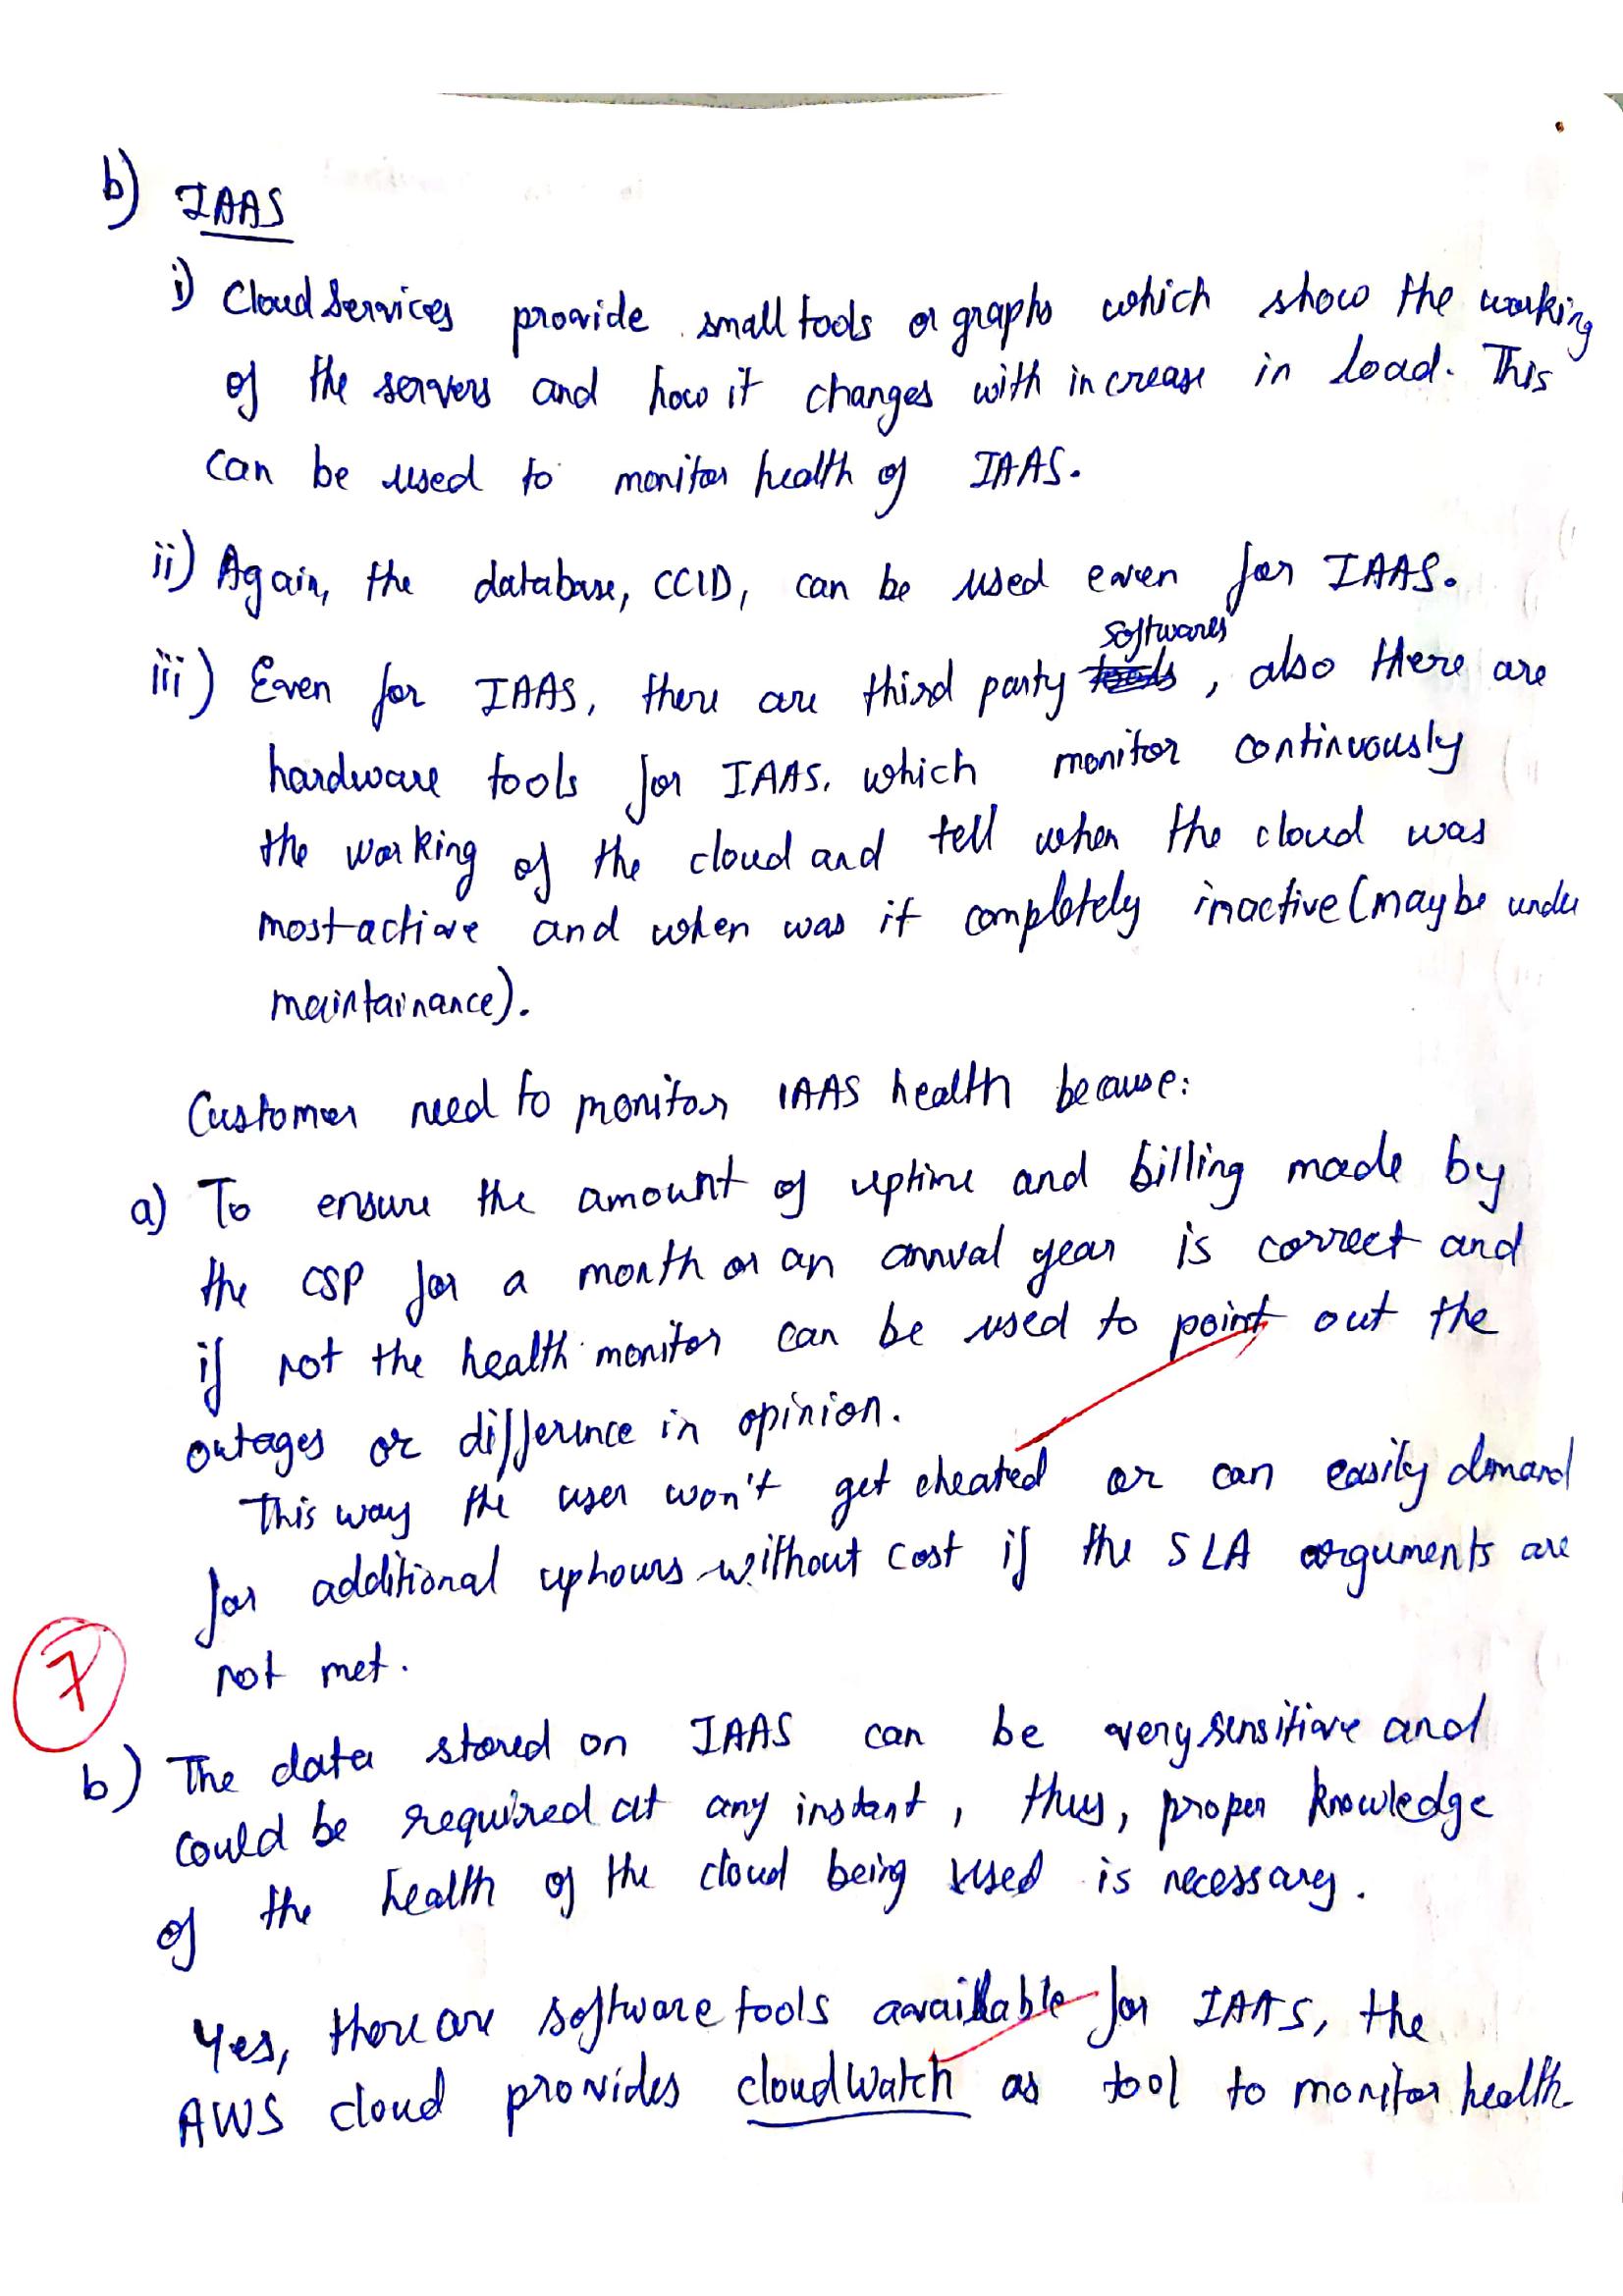 b) IAAS
i) Cloud Services provide small tools or graphs which show the working
of the servers and how it changes with increase in load. This
can be used to monitor health of IAAS.
ii) Again, the database, CCID, can be used even for IAAS.
softwares
iii) Even for IAAS, there are third party tools, also there are
hardware tools for IAAS. which monitor continuously
the working of the cloud and tell when the cloud was
most active and when was it completely inactive (maybe under
maintainance).
Customer need to monitor IAAS health because:
a) To ensure the amount of uptime and billing made by
the CSP for a month or an annual year is correct and
if not the health monitor can be used to point out the
outages or difference in opinion.
This way the user won't get cheated or can easily demand
for additional uphours without cost if the SLA arguments are
not met.
7
b) The data stored on IAAS can be very sensitive and
could be required at any instant, thus, proper knowledge
of the health of the cloud being used is necessary.
Yes, there are software tools available for IAAS, the
AWS cloud provides cloudWatch as tool to monitor health